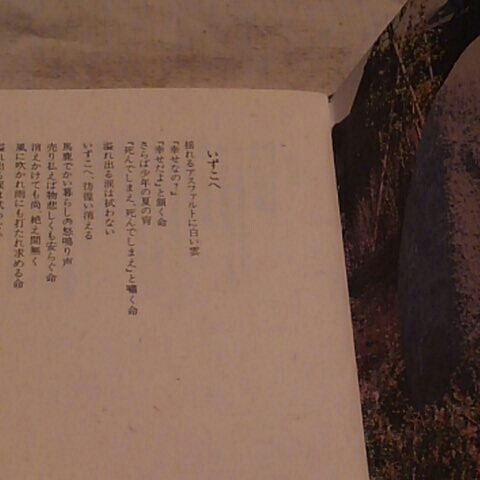 いずこへ
揺れるアスファルトに白い雲
『幸せなの？』
『幸せだよ』と頷く命
さらば少年の夏の宵
『死んでしまえ、死んでしまえ』と囁く命
溢れ出る涙は拭わない
いずこへ、彷徨い消える
馬鹿でかい暮らしの怒鳴り声
売り払えば物悲しくも安らぐ命
消えかけても尚、絶え間無く
風に吹かれ雨にも打たれ求める命